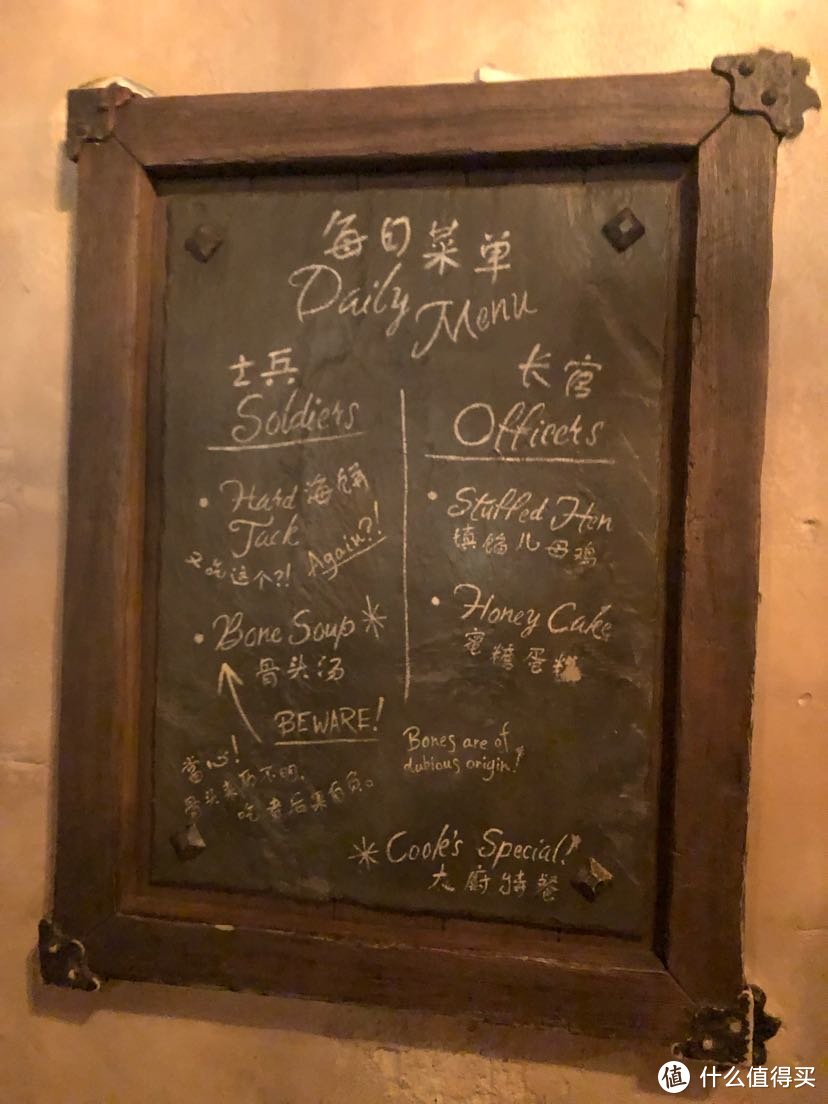 每日菜单
Daily Menu
士兵
Soldiers
• Hard 海饼
Tack
又吃这个?! Again?!
• Bone Soup *
骨头汤
BEWARE!
當心!
骨头来历不明,
吃者后果自负。
长官
Officers
• Stuffed Hen
镇馅儿母鸡
• Honey Cake
蜜糖蛋糕
Bones are of
dubious origin!
* Cook's Special!
大廚特餐
值 什么值得买